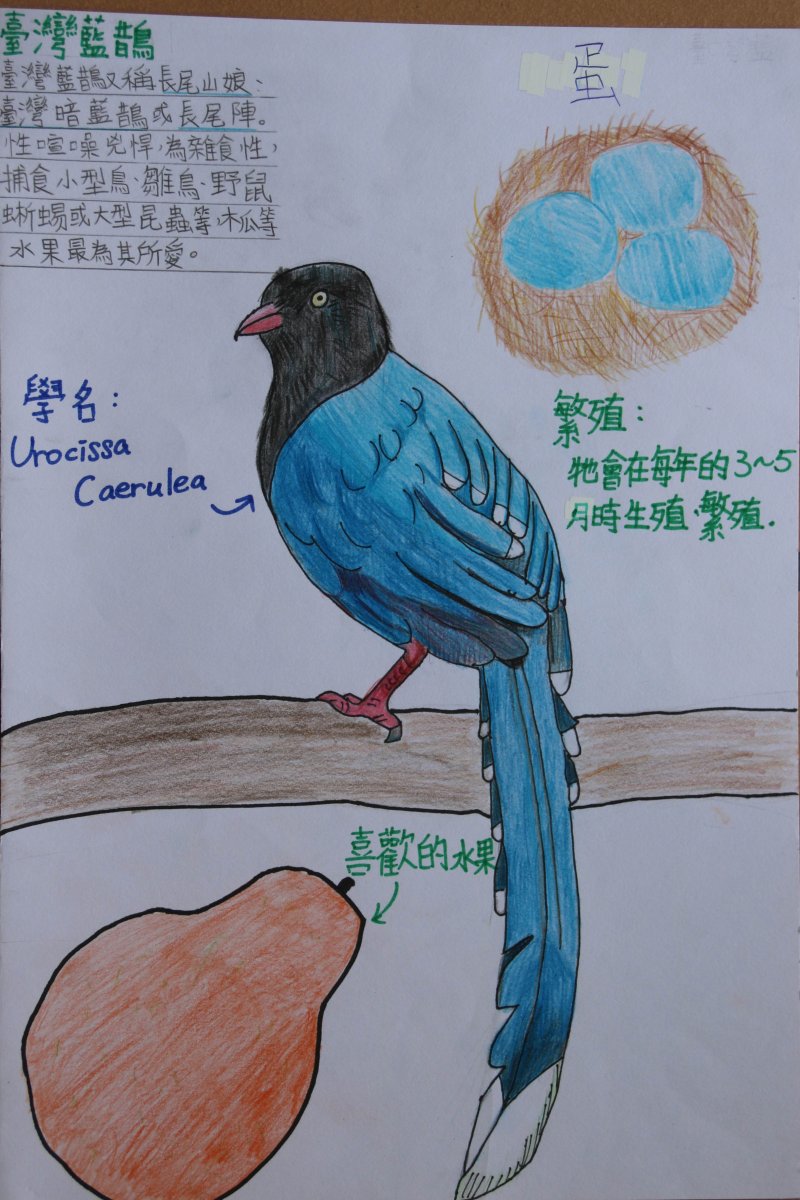 臺灣藍鵲
臺灣藍鵲又稱長尾山娘、
臺灣暗藍鵲或長尾陣。
性喧噪兇悍,為雜食性,
捕食小型鳥、雛鳥、野鼠
蜥蜴或大型昆蟲等,木瓜等
水果最為其所愛。
蛋
學名:
Urocissa
Caerulea
繁殖:
牠會在每年的3~5
月時生殖、繁殖.
喜歡的水果